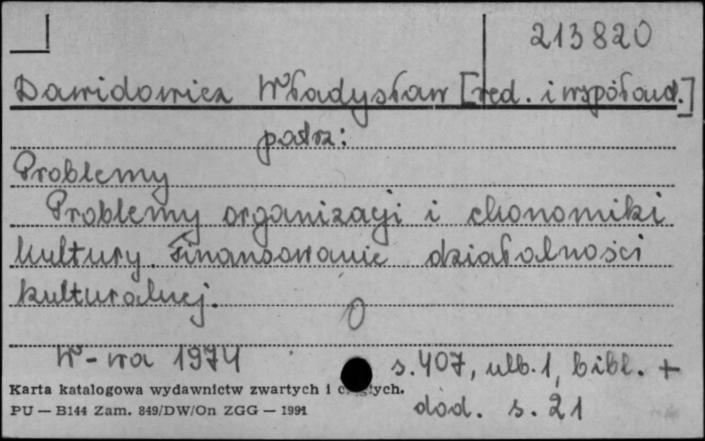 213820
Dawidowicz Władysław [red. i współaut.]
patrz:
Problemy
Problemy organizacji i ekonomiki
kultury. Finansowanie działalności
kulturalnej.
0
W-wa 1974
s. 407, nlb. 1, bibl. +
Karta katalogowa wydawnictw zwartych i ciągłych.
dod. s. 21
PU — B144 Zam. 849/DW/On ZGG — 1991